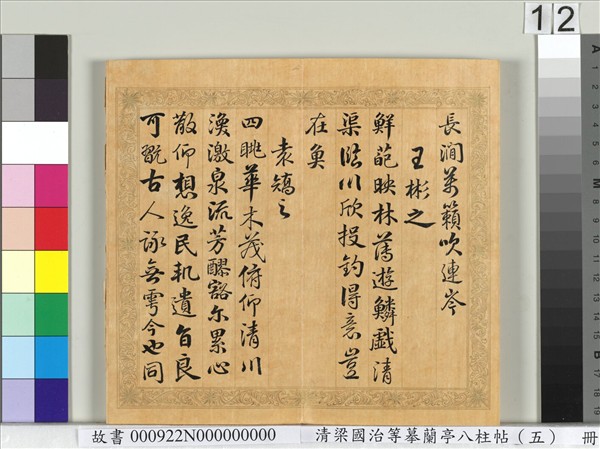 12
長澗萬籟吹連岑
王彬之
鮮葩映林薄遊鱗戯清
渠臨川欣投釣得意豈
在魚
袁矯之
四眺華木茂俯仰清川
渙激泉流芳醪豁尔累心
散仰想逸民軌遺旨良
可翫古人詠無雩今也同
故書 000922N000000000 清梁國治等摹蘭亭八柱帖（五） 冊